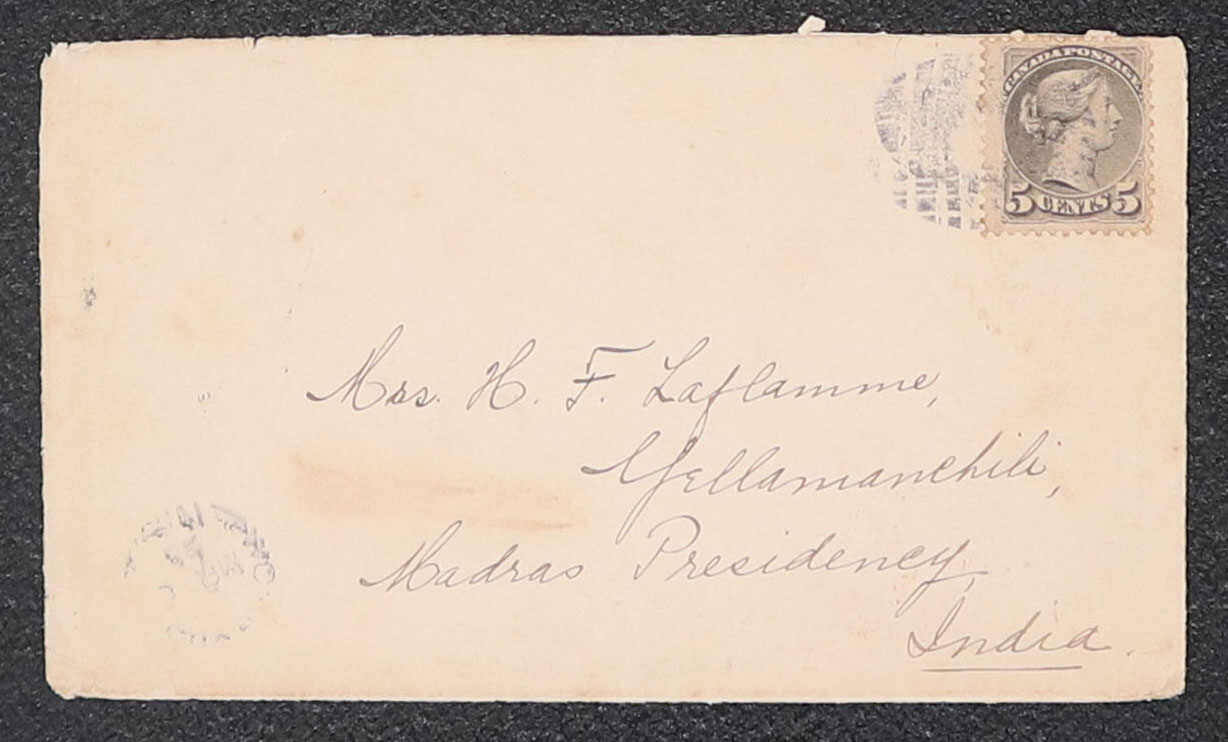 CANADA POSTAGE
5 CENTS 5
Mrs. H. F. Laflamme,
Yellamanchili,
Madras Presidency
India.